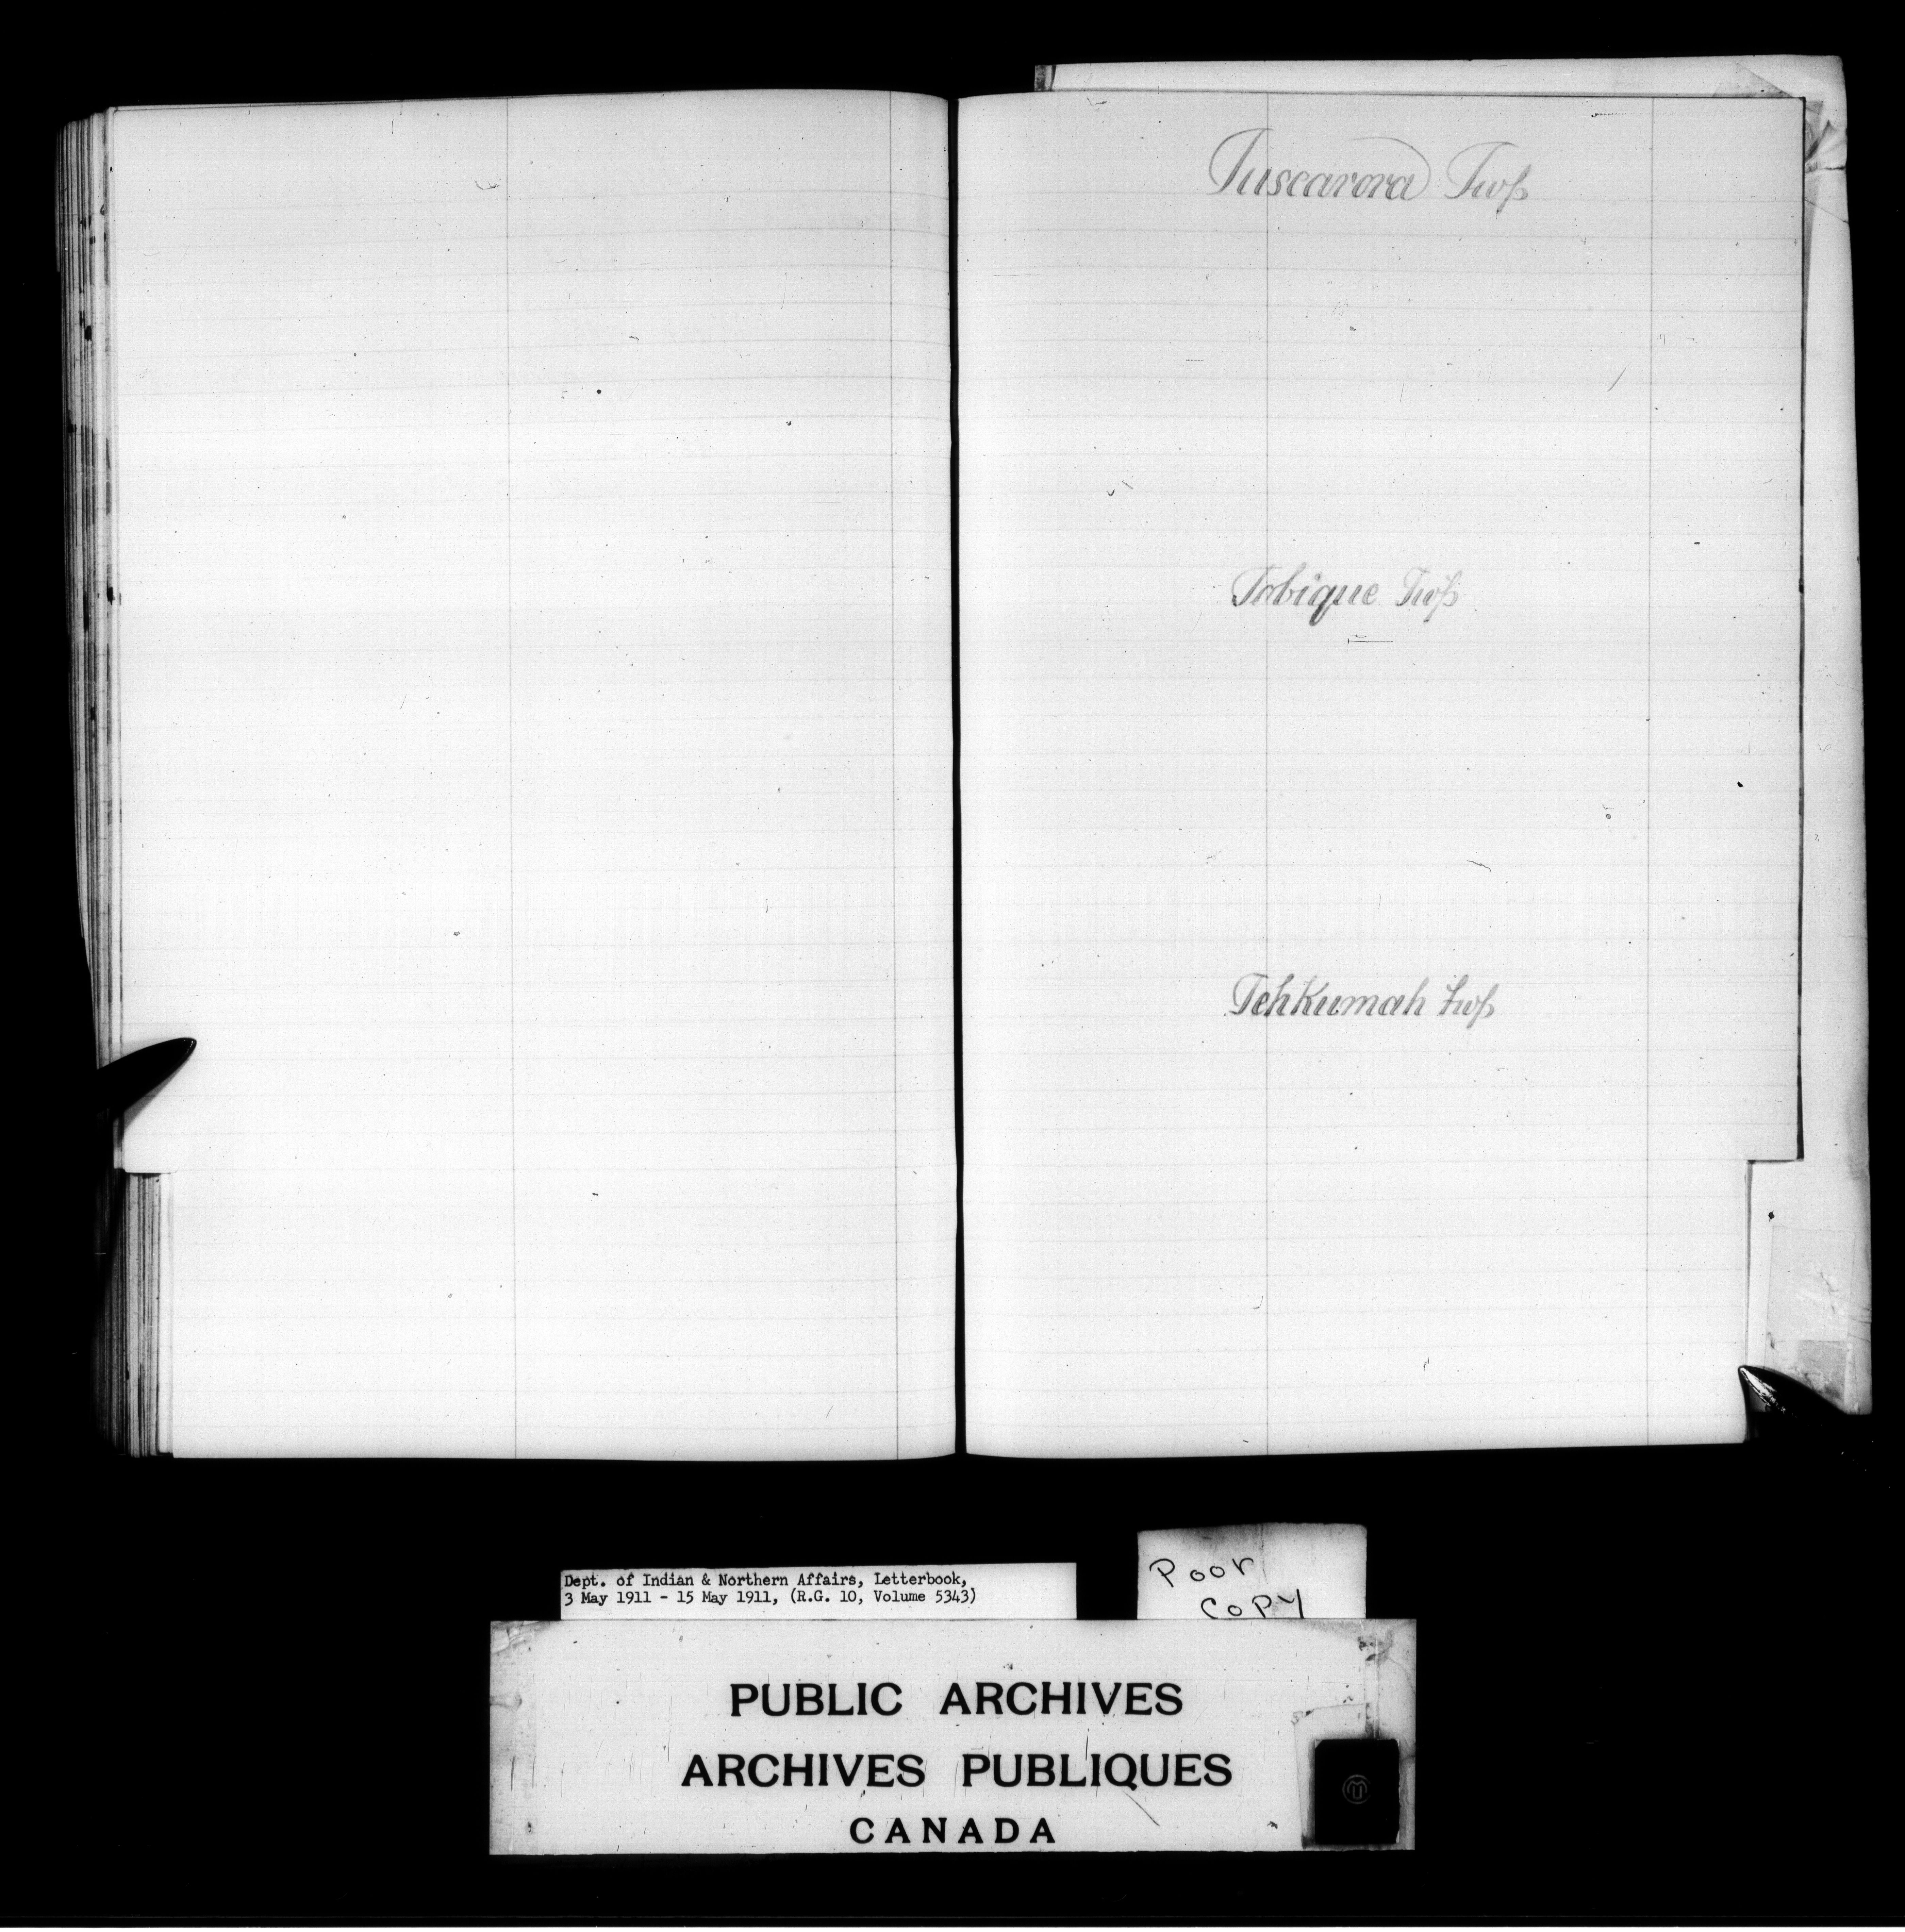 Tuscarora Twp
Tobique Twp
Tehkumah twp
Dept. of Indian & Northern Affairs, Letterbook,
3 May 1911 - 15 May 1911, (R.G. 10, Volume 5343)
Poor
Copy
PUBLIC ARCHIVES
ARCHIVES PUBLIQUES
CANADA